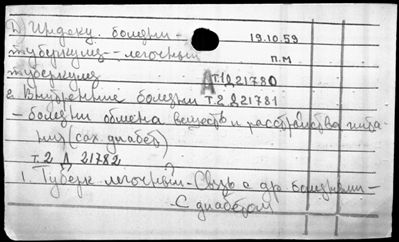 Д) Индекс. болезни - 19.10.59
туберкулез -- легочный п.м
туберкулез А Т.1Д21780
2 Внутренние болезни Т.2 Д 21781
- болезни обмена веществ и расстройства пита-
ния (сах диабет)
Т.2 Д 21782
1. Туберк легочный - Связь с др болезнями -
- С диабетом